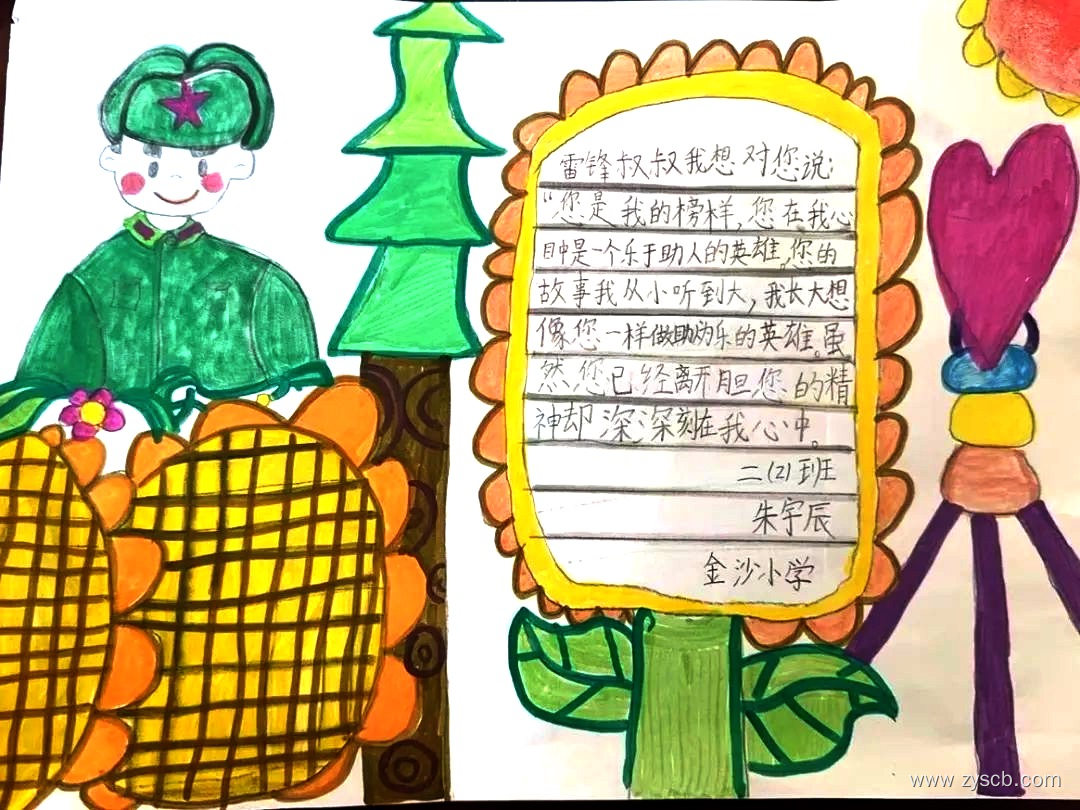 雷锋叔叔我想对您说:
“您是我的榜样,您在我心
目中是一个乐于助人的英雄。您的
故事我从小听到大,我长大想
像您一样做助为乐的英雄。虽
然您已经离开但您的精
神却深深刻在我心中。
二(2)班
朱宇辰
金沙小学
www.zyscb.com